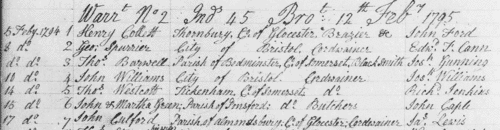 Warr.t N.o 2 Ind.s 45 Bro.t 12.th Feb.y 1795
5 Feby. 1794 1 Henry Collett Thornbury, C.o of Glocester Brazier &c John Ford
8 d.o 2 Geo. Spurrier City of Bristol Cordwainer Edw.d F. Cann
d.o d.o 3 Tho.s Barwell Parish of Bedminster, C.o of Somerset, Black Smith Jos. Gunning
10 d.o 4 John Williams City of Bristol Cordwainer Jos. Williams
14 d.o 5 Tho.s Westcott Tickenham, C.o of Somerset, d.o Rich.d Jenkins
15 d.o 6 John & Martha Green; Parish of d.o Butchers John Caple
17 d.o 7 John Parish of Almondsbury, C.o of Glocester; Cordwainer Ja.s Lewis